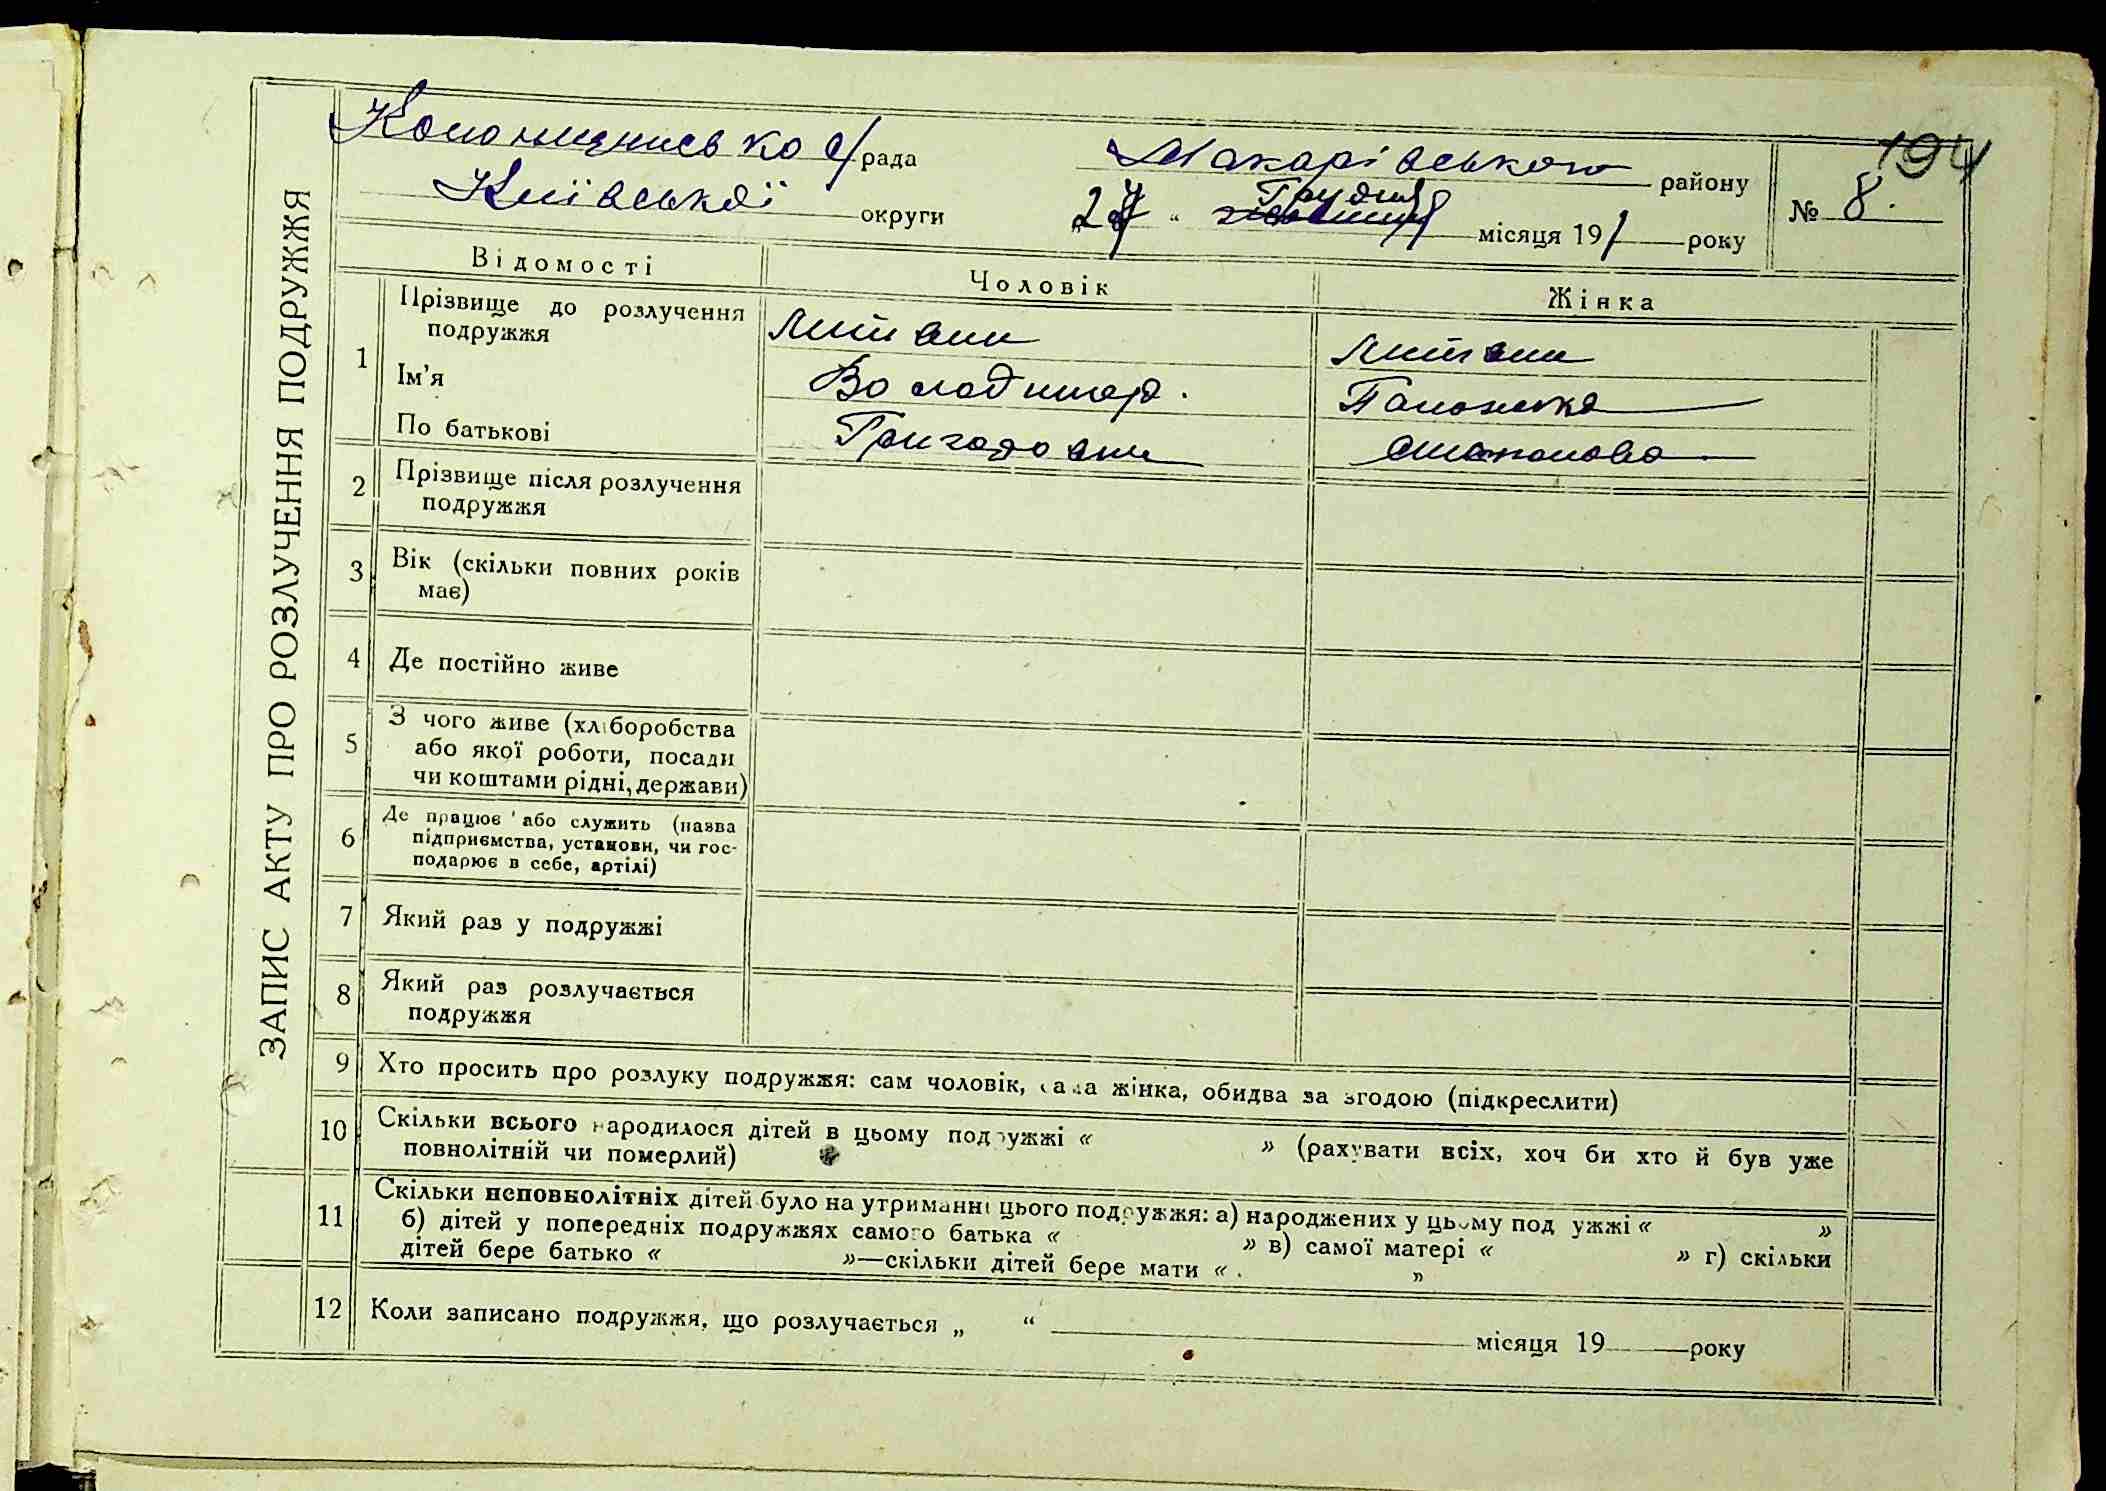 194
ЗАПИС АКТУ ПРО РОЗЛУЧЕННЯ ПОДРУЖЖЯ
с/рада Макарівського району № 8.
Київської округи „27“ Грудня місяця 19 року
Відомості Чоловік Жінка
1 Прізвище до розлучення подружжя Литвин Литвин
Ім’я Володимир. Паламska
По батькові Григорович Степанова
2 Прізвище після розлучення
подружжя
3 Вік (скільки повних років
має)
4 Де постійно живе
5 З чого живе (хліборобства
або якої роботи, посади
чи коштами рідні, держави)
6 Де працює або служить (назва
підприємства, установи, чи гос-
подарює в себе, артілі)
7 Який раз у подружжі
8 Який раз розлучається
подружжя
9 Хто просить про розлуку подружжя: сам чоловік, сама жінка, обидва за згодою (підкреслити)
10 Скільки всього народилося дітей в цьому подружжі « » (рахувати всіх, хоч би хто й був уже
повнолітній чи померлий)
11 Скільки неповнолітніх дітей було на утриманні цього подружжя: а) народжених у цьому подружжі « »
б) дітей у попередніх подружжях самого батька « » в) самої матері « » г) скільки
дітей бере батько « »—скільки дітей бере мати « »
12 Коли записано подружжя, що розлучається „ “ місяця 19 року